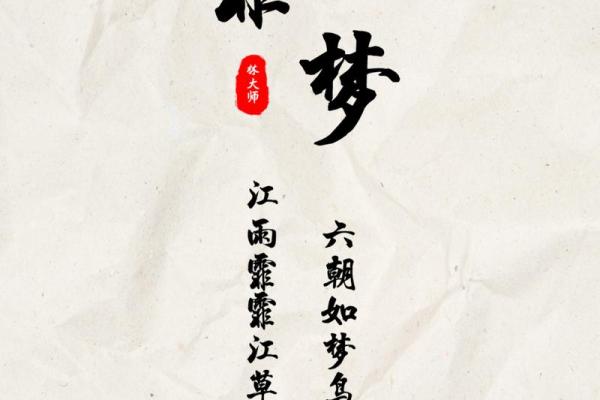 梦
林大师
江雨霏霏江草
六朝如梦鸟